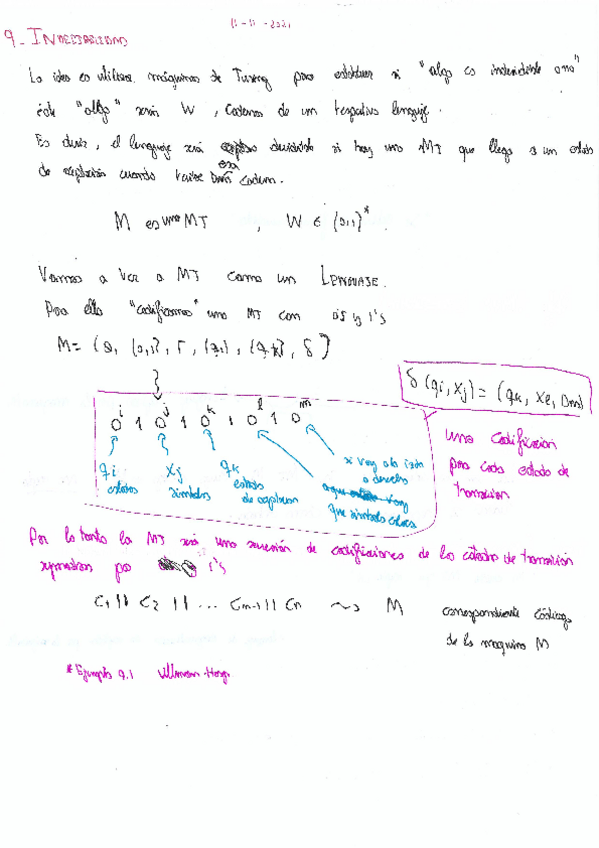 11-11-2021
9_ INDECIBILIDAD
La idea es utilizar máquinas de Turing para establecer si "algo es indecidible o no"
éste "algo" serán W, cadenas de un respectivo lenguaje.
Es decir, el lenguaje será decidible si hay una MT que llega a un estado
de aceptación cuando recibe esa cadena.
M es una MT , W ∈ {0,1}*
Vamos a ver a MT como un LENGUAJE.
Para ello "codificamos" una MT con 0's y 1's
M = (Q, {0,1}, Γ, {q1}, {q2}, δ)
δ(qi, Xj) = (qk, Xl, Dm)
0^i 1 0^j 1 0^k 1 0^l 1 0^m
una codificación
para cada estado de
transición
qi estados
Xj símbolos
qk estados de aceptación
que símbolo coloca
si voy a la izda o derecha
Por lo tanto la MT será una sucesión de codificaciones de los estados de transición
separadas por 1's
C1 11 C2 11 ... Cn-1 11 Cn ~> M
correspondiente código
de la maquina M
* Ejemplo 9.1 Ullman-Hop.